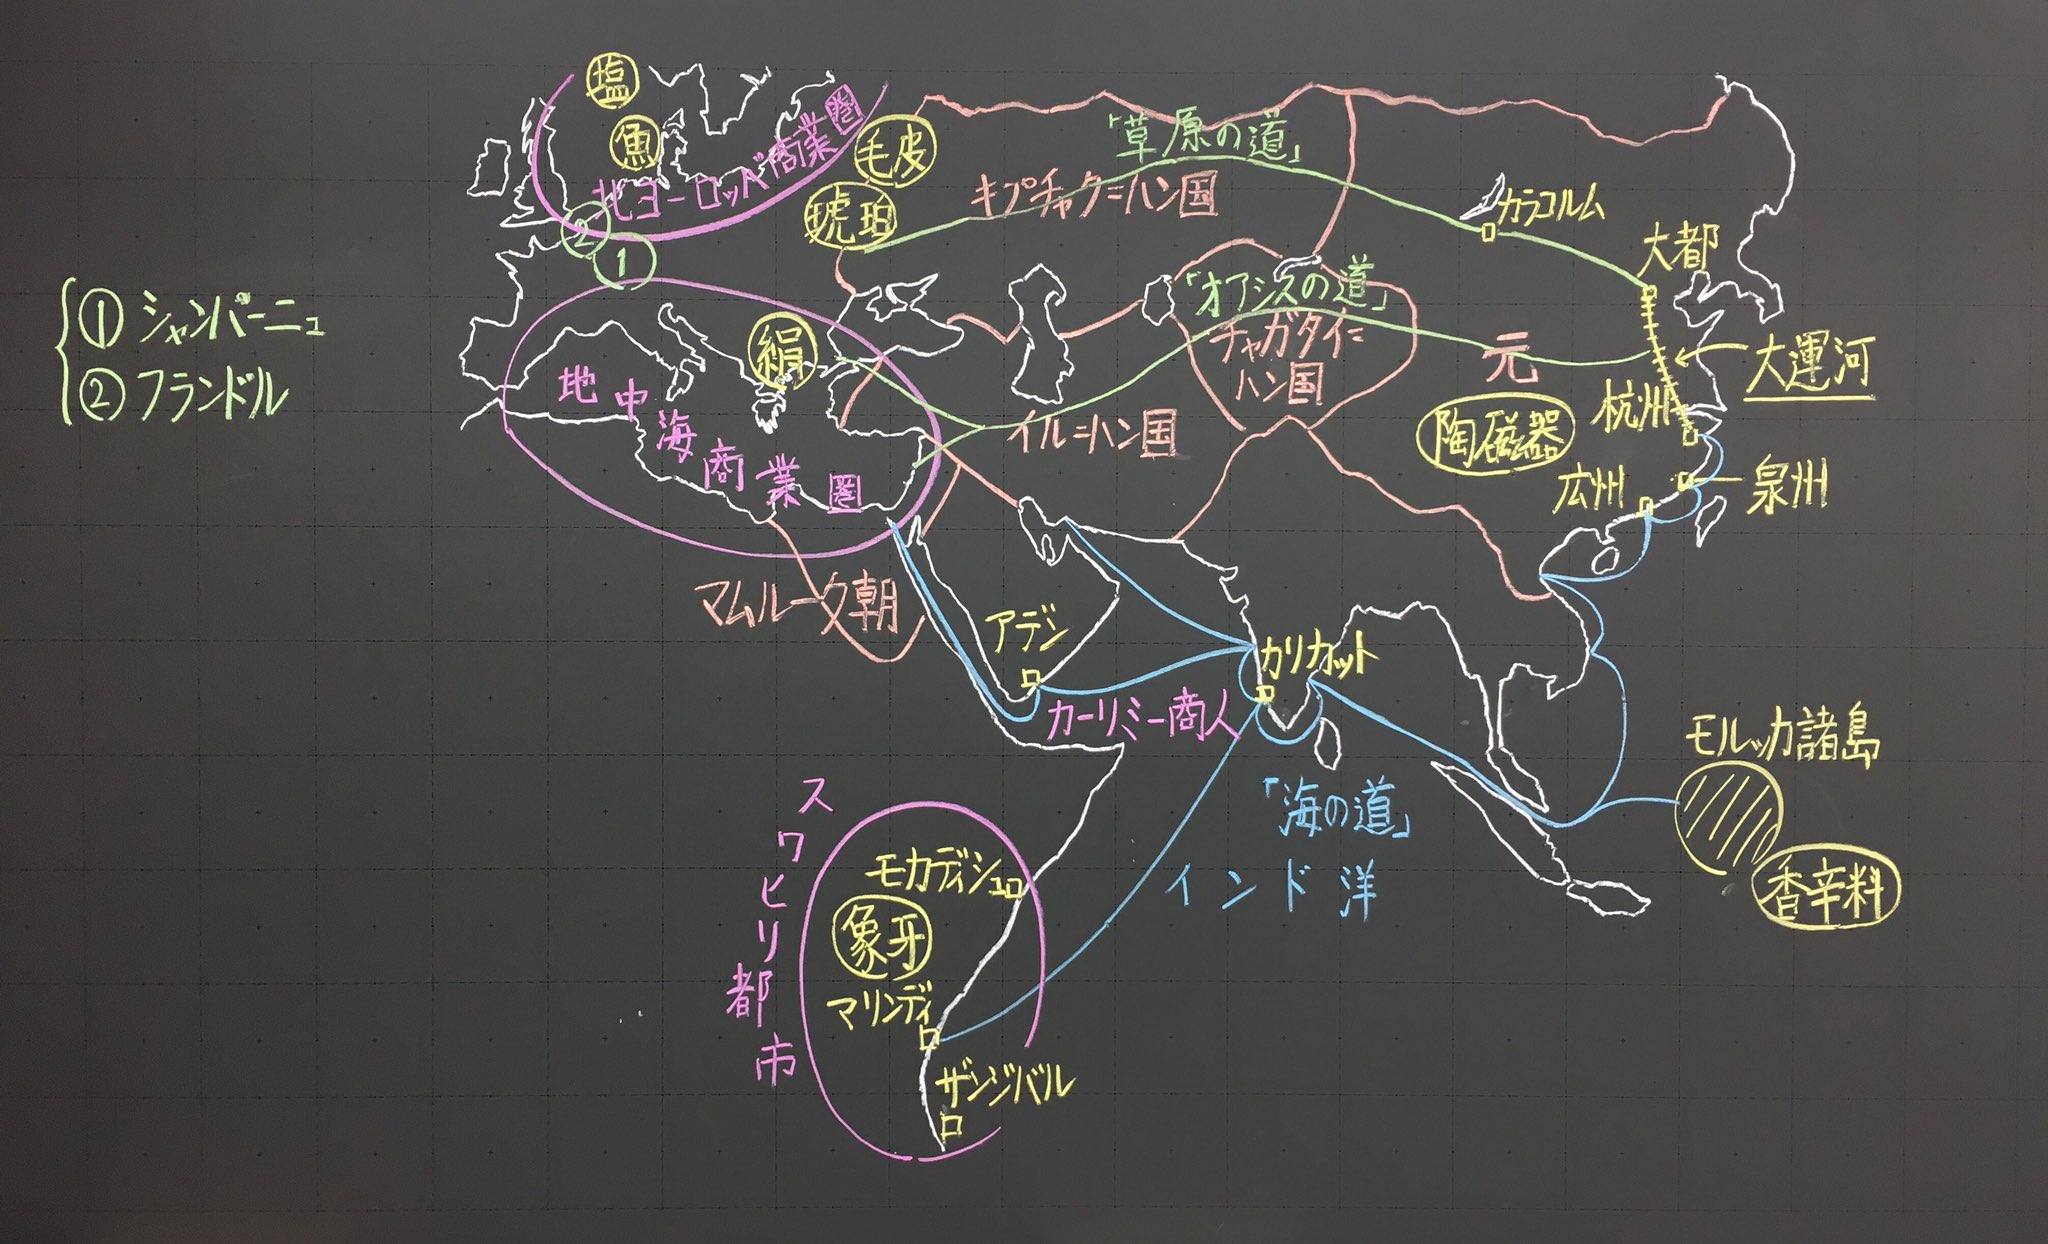 塩
魚
北ヨーロッパ商業圏
毛皮
琥珀
「草原の道」
キプチャク=ハン国
カラコルム
大都
②
①
① シャンパーニュ
② フランドル
「オアシスの道」
チャガタイ=
ハン国
元
大運河
絹
地中海商業圏
イル=ハン国
杭州
陶磁器
広州
泉州
マムルーク朝
アデン
カリカット
カーリミー商人
モルッカ諸島
香辛料
「海の道」
インド洋
スワヒリ都市
モガディシュ
象牙
マリンディ
ザンジバル